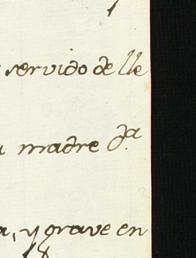 servido de lle
madre d.ª
, y grave en